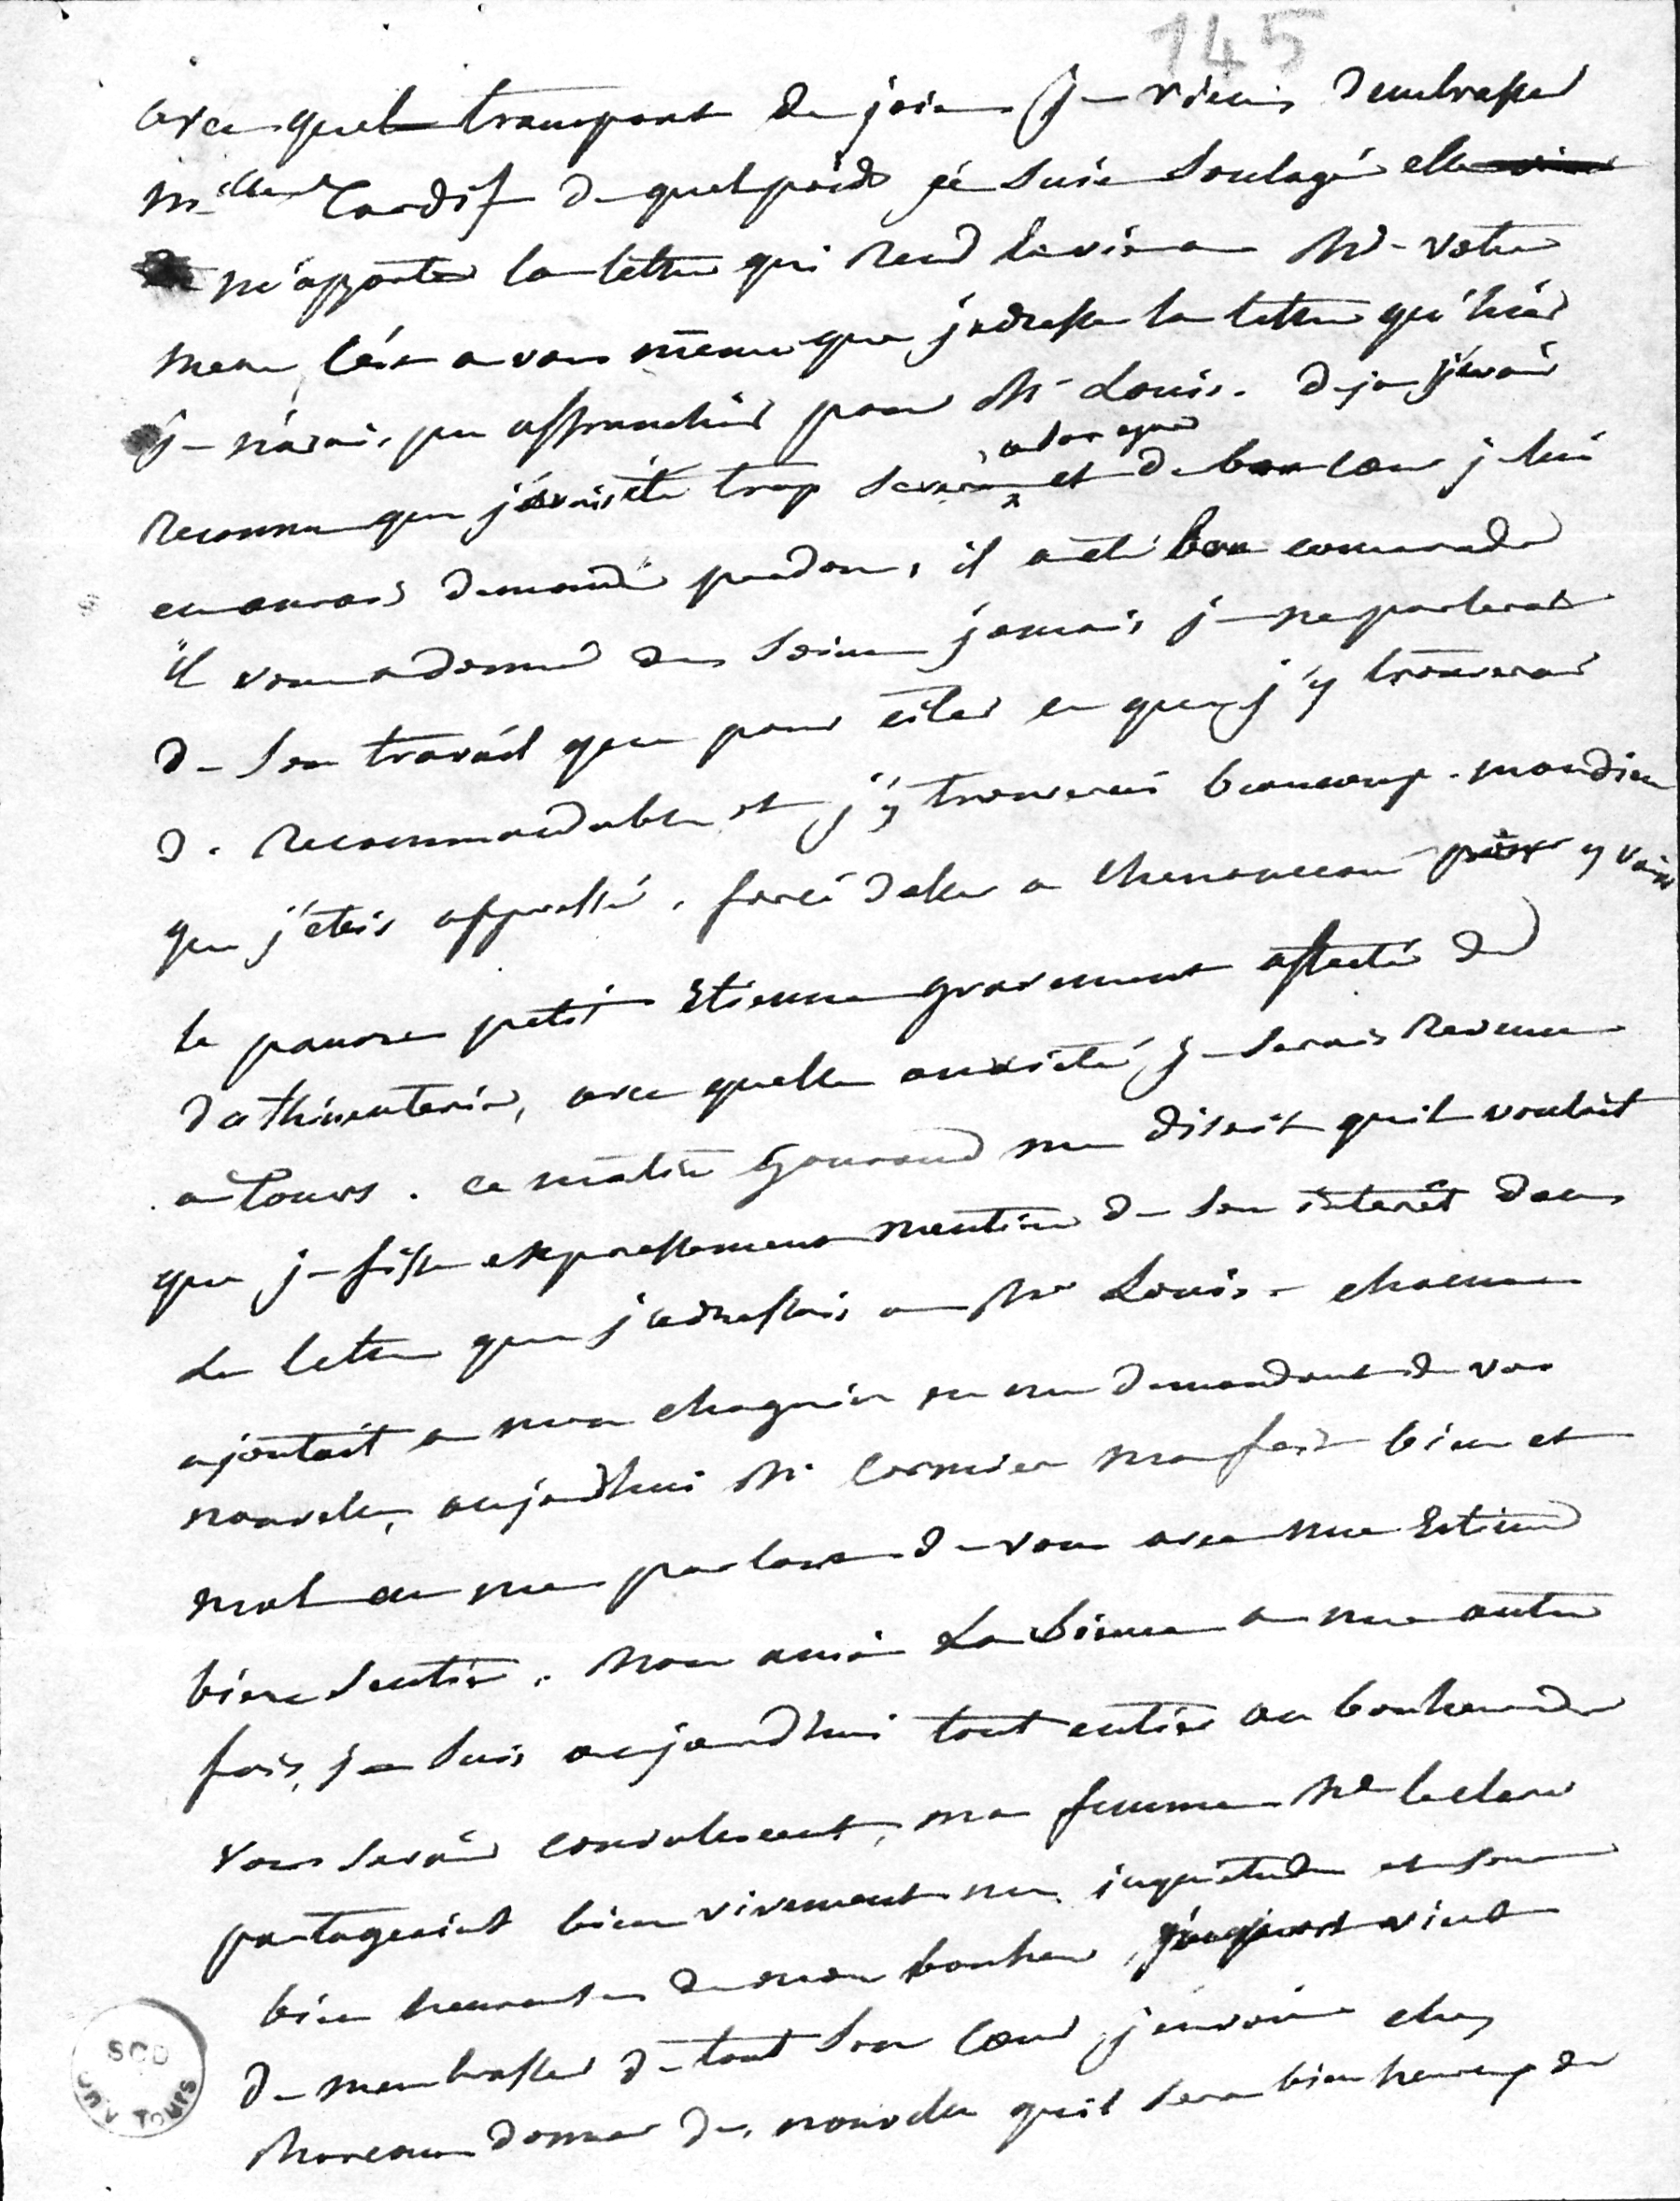 145
avec quel transport de joie je viens d'embrasser
Melle Tardif de quel poids je suis soulagé elle
m'apporte la lettre qui rend la vie a Md. votre
mere, c'est a vous même que j'adresse la lettre qu'hier
je n'avais pu affranchir pour Mr Louis. deja j'avais
reconnu que j'avais été trop severe a son egard et de bon cœur je lui
en aurois demandé pardon, il a été bon camarade
il vous a donné des soins jamais je ne parlerai
de son travail que pour citer ce que j'y trouverai
de recommandable et j'y trouverai beaucoup. mon dieu
que j'étais oppressé. forcé d'aller a chenonceau pour y voir
le pauvre petit Etienne gravement affecté de
dothinenterie, avec quelle anxiété je serais revenu
a Tours. ce matin Gouraud me disait qu'il voulait
que je fisse expressement mention de son interêt dans
la lettre que j'adressais a Mr Louis. chacun
ajoutait a mon chagrin en me demandant de vos
nouvelles, aujourdhui Mr Cormier m'a fait bien et
mal en me parlant de vous avec une Estime
bien sentie. mon ami La Sienne a une autre
fois, je suis aujourdhui tout entier au bonheur de
vous savoir convalescent, ma femme Me leclerc
partageaient bien vivement mes inquietudes et sont
bien heureuses de mon bonheur, vient
de m'embrasser de tout son cœur, j'envoie chez
Moreau donner des nouvelles qu'il sera bien heureux de
SCD
Univ Tours